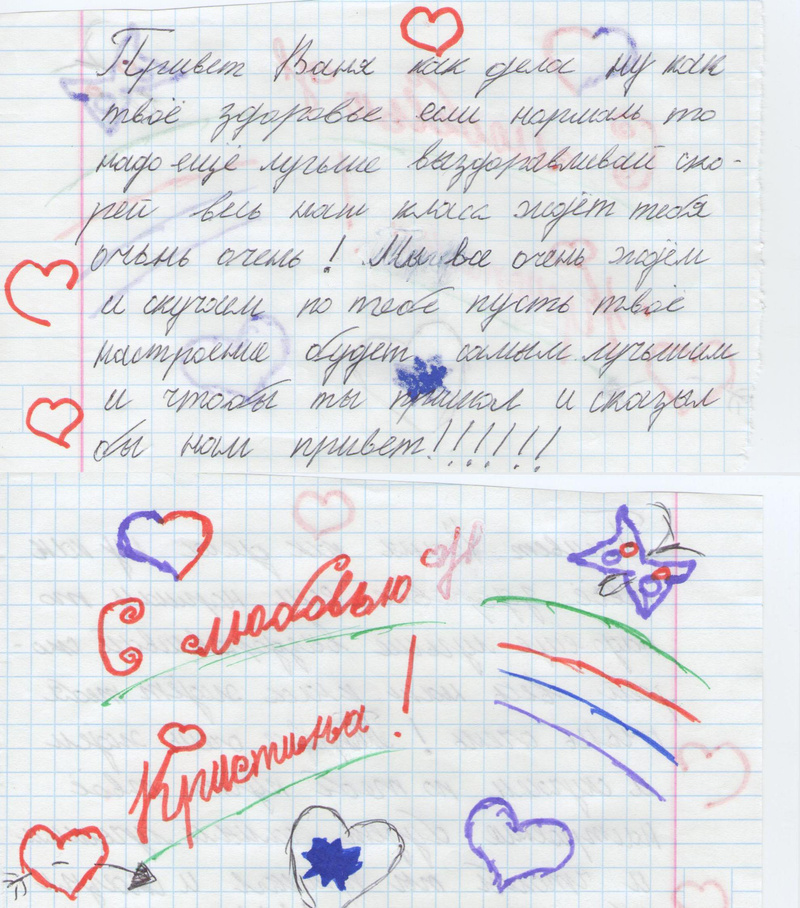 Привет Ваня как дела ну как
твоё здоровье если нормаль то
надо ещё лучьше выздоравливай ско-
рей весь наш класс ждёт тебя
очьнь очень! Мы все очень ждём
и скучаем по тебе пусть твоё
настроение будет самым лучьшим
и чтобы ты пришол и сказал
бы нам привет!!!!!!
С любовью
Кристина!